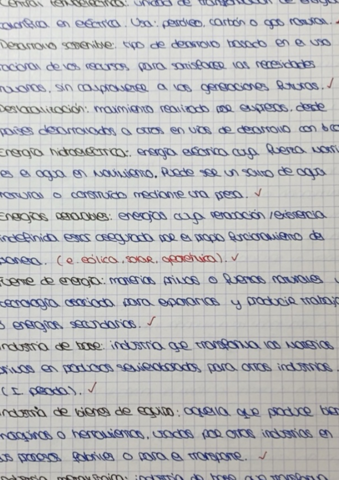 Central termoeléctrica: unidad de transformación de energía
calorífica en eléctrica. Usa petróleo, carbón o gas natural. ✓
Desarrollo sostenible: tipo de desarrollo basado en el uso
racional de los recursos, para satisfacer las necesidades
nuestras, sin comprometer a las generaciones futuras. ✓
Deslocalización: movimiento realizado por empresas, desde
países desarrollados a otros en vías de desarrollo con
Energía hidroeléctrica: energía eléctrica cuya fuente
es el agua en movimiento. Puede ser un salto de agua
natural o construido mediante una presa. ✓
Energías renovables: energías cuya renovación/existencia
indefinida está asegurada por el propio funcionamiento de
(e. eólica, solar, ). ✓
Fuente de energía: materias primas o fenos naturales y
tecnología asociada para explotarlos y producir trabajo
energías secundarias. ✓
Industria de base: industria que transforma las materias
primas en productos semielaborados, para otras industrias.
(I. pesada). ✓
Industria de bienes de equipo: aquella que produce
máquinas o herramientas, usados por otras industrias en
procesos fabriles o para el transporte. ✓
Industria : industria de base que transforma